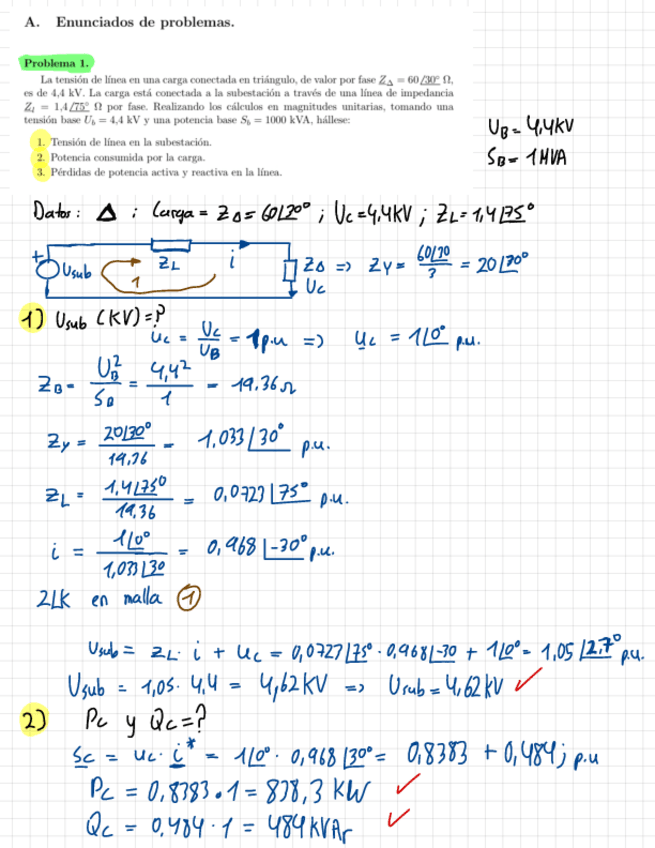 A. Enunciados de problemas.
Problema 1.
La tensión de línea en una carga conectada en triángulo, de valor por fase Z_Δ = 60/30° Ω,
es de 4,4 kV. La carga está conectada a la subestación a través de una línea de impedancia
Z_l = 1,4/75° Ω por fase. Realizando los cálculos en magnitudes unitarias, tomando una
tensión base U_b = 4,4 kV y una potencia base S_b = 1000 kVA, hállese:
1. Tensión de línea en la subestación.
2. Potencia consumida por la carga.
3. Pérdidas de potencia activa y reactiva en la línea.
U_B = 4,4kV
S_B = 1 MVA
Datos: Δ ; Carga = Z_Δ = 60|30° ; U_C = 4,4kV ; Z_L = 1,4|75°
+ U_sub Z_L i Z_Δ => Z_Y = 60|30 / 3 = 20|30°
1 U_C
1) U_sub (KV) = ?
u_c = U_C / U_B = 1 p.u => u_c = 1|0° p.u.
Z_B = U_B² / S_B = 4,4² / 1 = 19,36 Ω
Z_Y = 20|30° / 19,36 = 1,033|30° p.u.
Z_L = 1,4|75° / 19,36 = 0,0723|75° p.u.
i = 1|0° / 1,033|30 = 0,968|-30° p.u.
2LK en malla 1
U_sub = Z_L · i + u_c = 0,0727|75° · 0,968|-30 + 1|0° = 1,05|2,7° p.u.
U_sub = 1,05 · 4,4 = 4,62 KV => U_sub = 4,62 kV ✓
2) P_C y Q_C = ?
S_C = u_c · i* = 1|0° · 0,968|30° = 0,8383 + 0,484j p.u
P_C = 0,8383 · 1 = 838,3 KW ✓
Q_C = 0,484 · 1 = 484 KVAr ✓